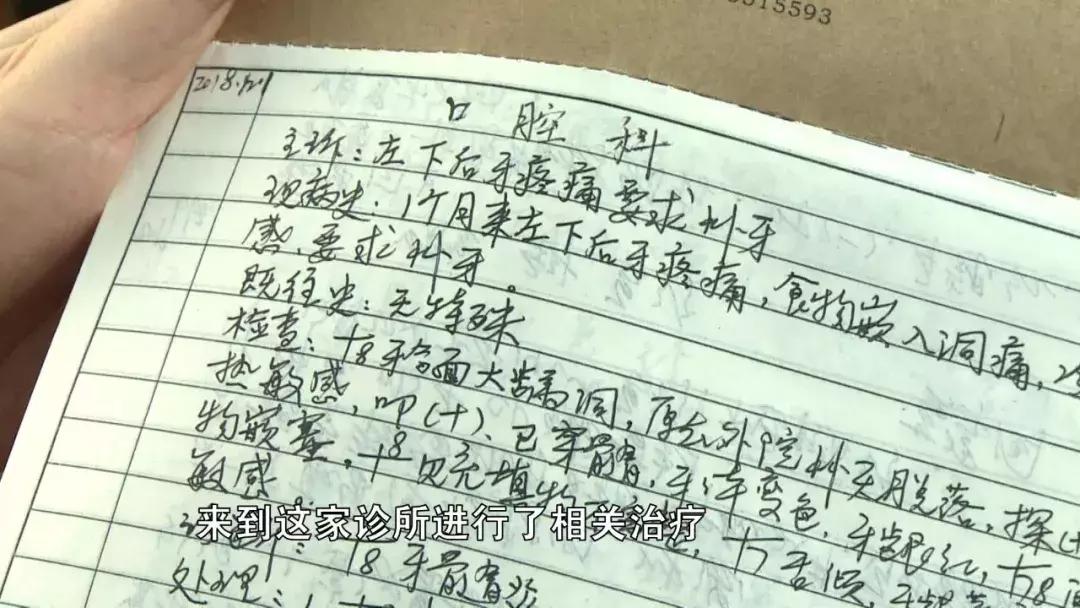 5515593
2018.
口腔科
主诉：左下后牙疼痛要求补牙
现病史：1个月来左下后牙疼痛，食物嵌入洞痛，
感，要求补牙。
既往史：无特殊
检查：8牙𬌗面大龋洞，原在外院补牙脱落，探(+
热敏感，叩(+)、已穿髓，牙体变色，牙龈红，8
物嵌塞，8见充填物 7舌侧
敏感
来到这家诊所进行了相关治疗
8牙
处理：